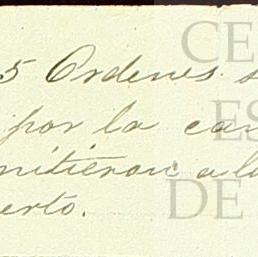 5 Ordenes s
por la can
mitieron a la
erto.
CE
ES
DE